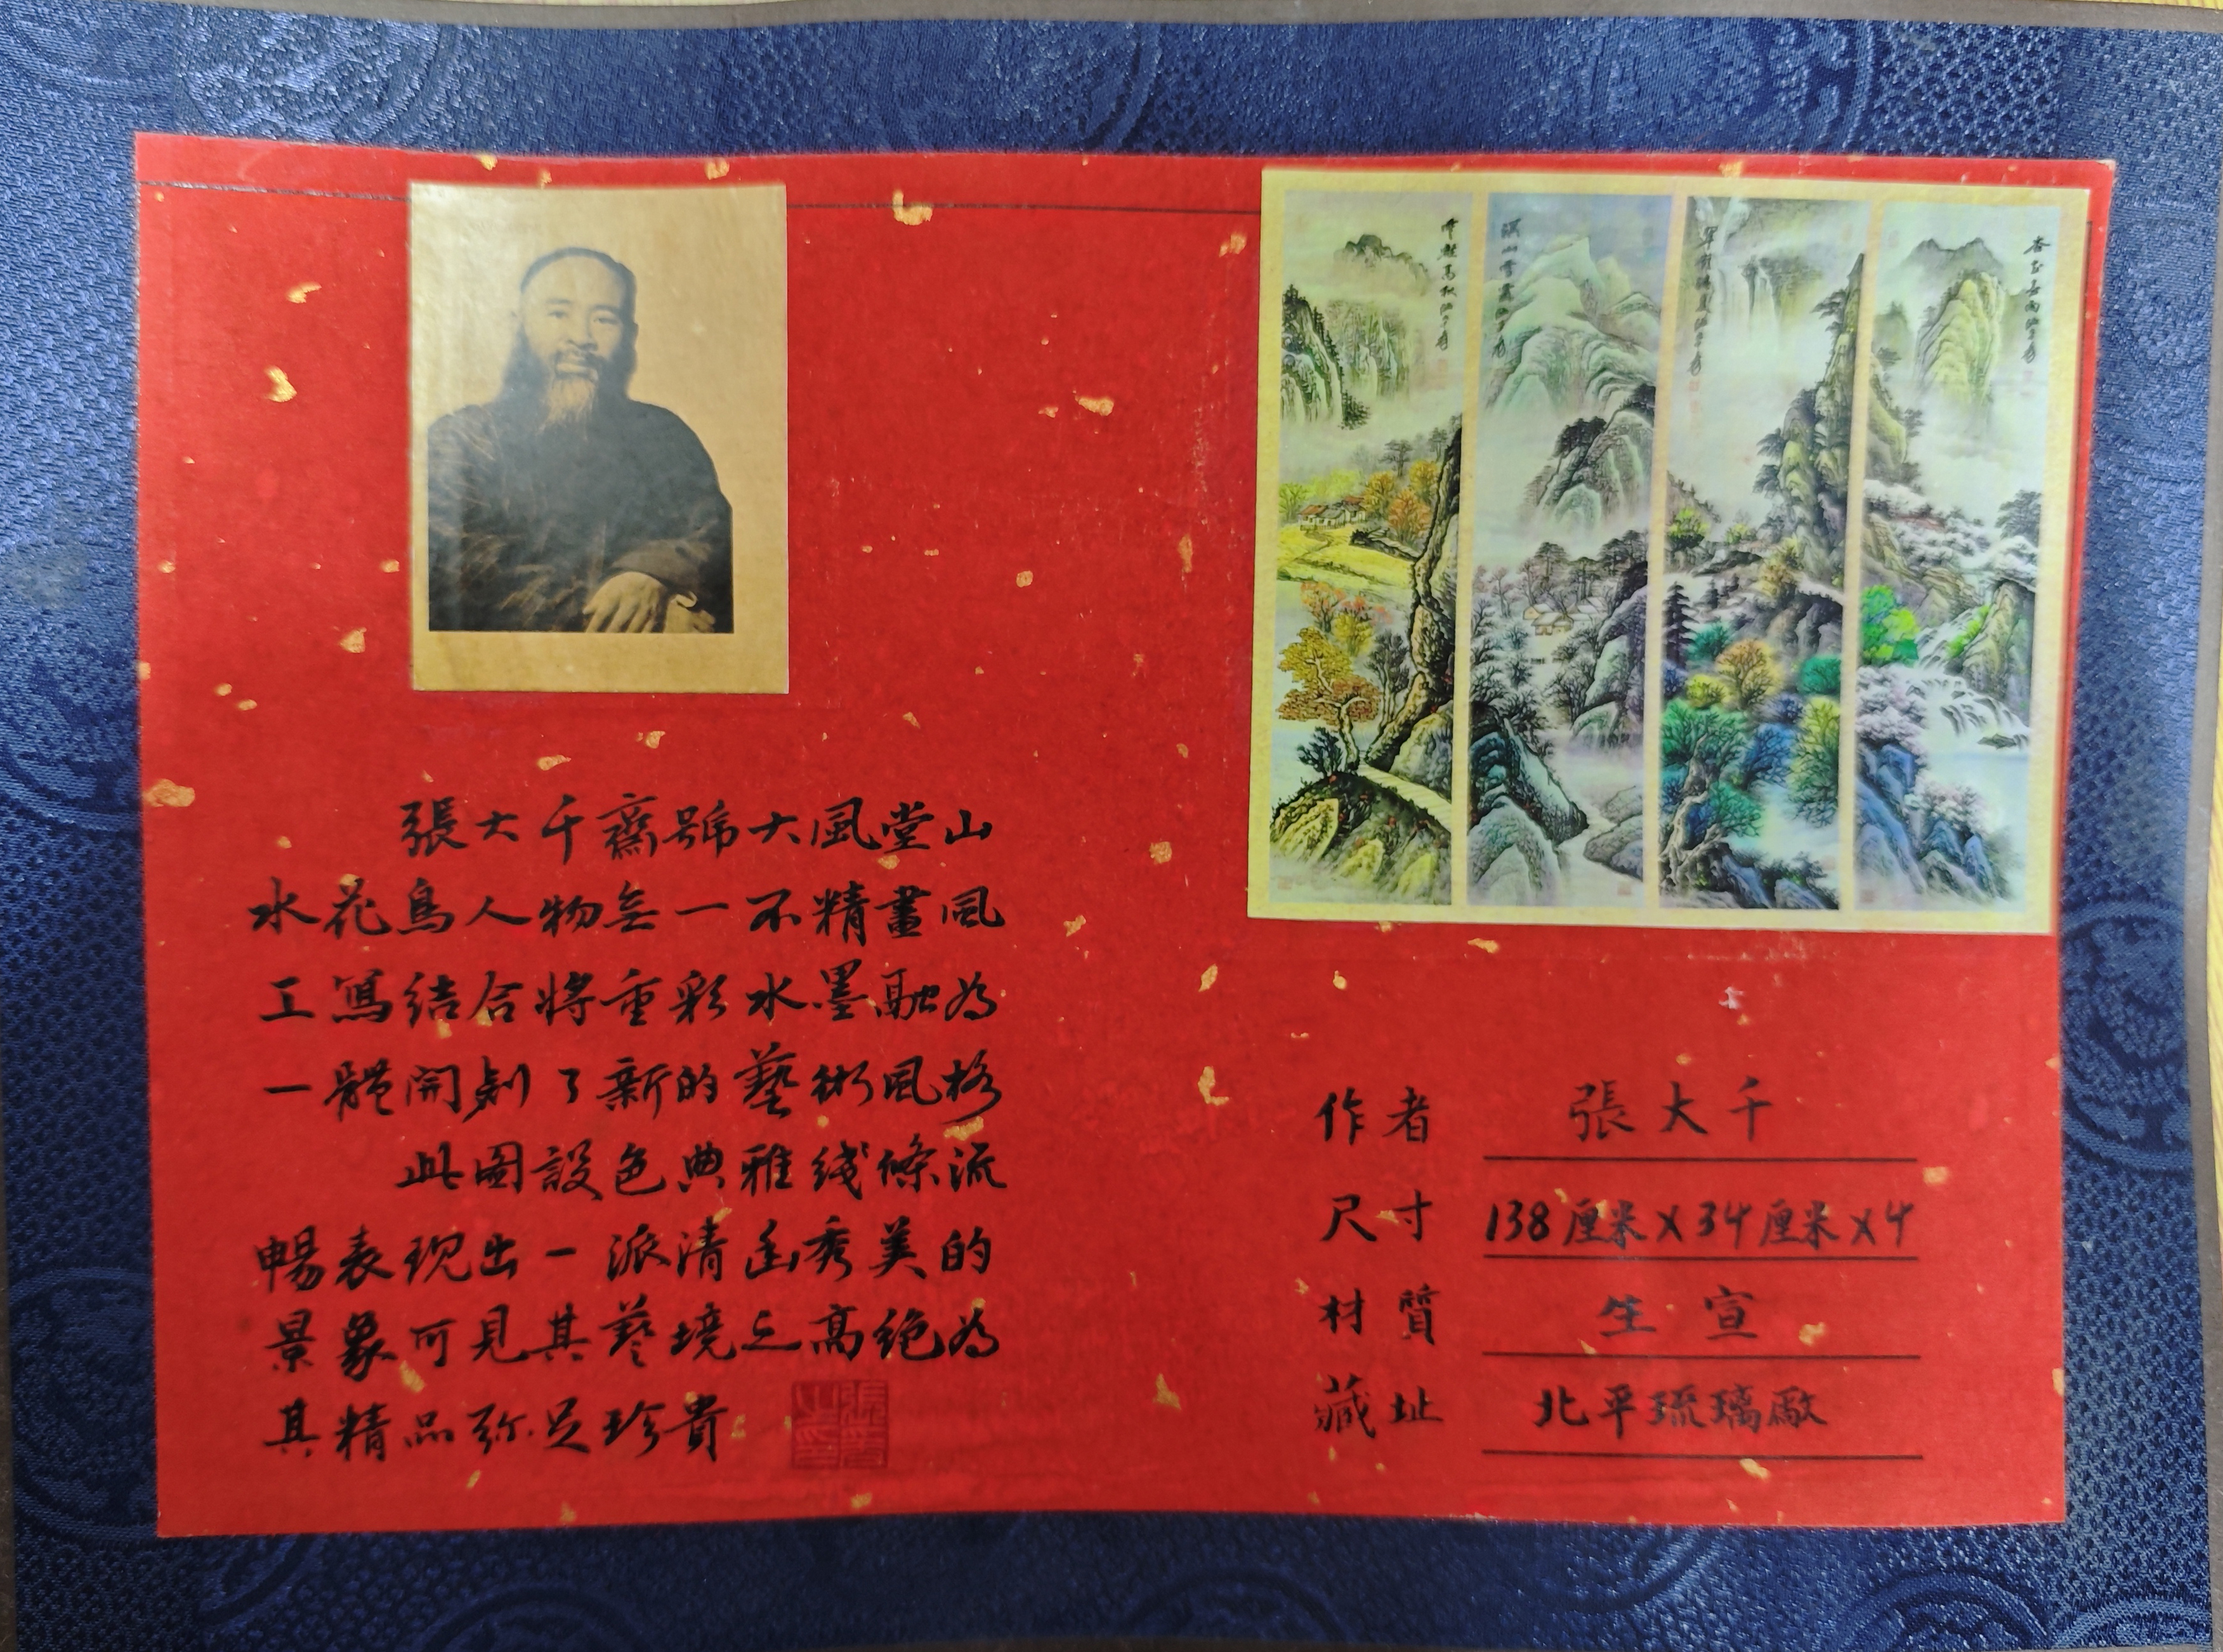 張大千齋號大風堂山
水花鳥人物無一不精畫風
工寫結合將重彩水墨融為
一體開創了新的藝術風格
此圖設色典雅线條流
暢表现出一派清幽秀美的
景象可見其藝境之高绝為
其精品弥足珍貴
作者 張大千
尺寸 138厘米X34厘米X4
材質 生宣
藏址 北平琉璃廠